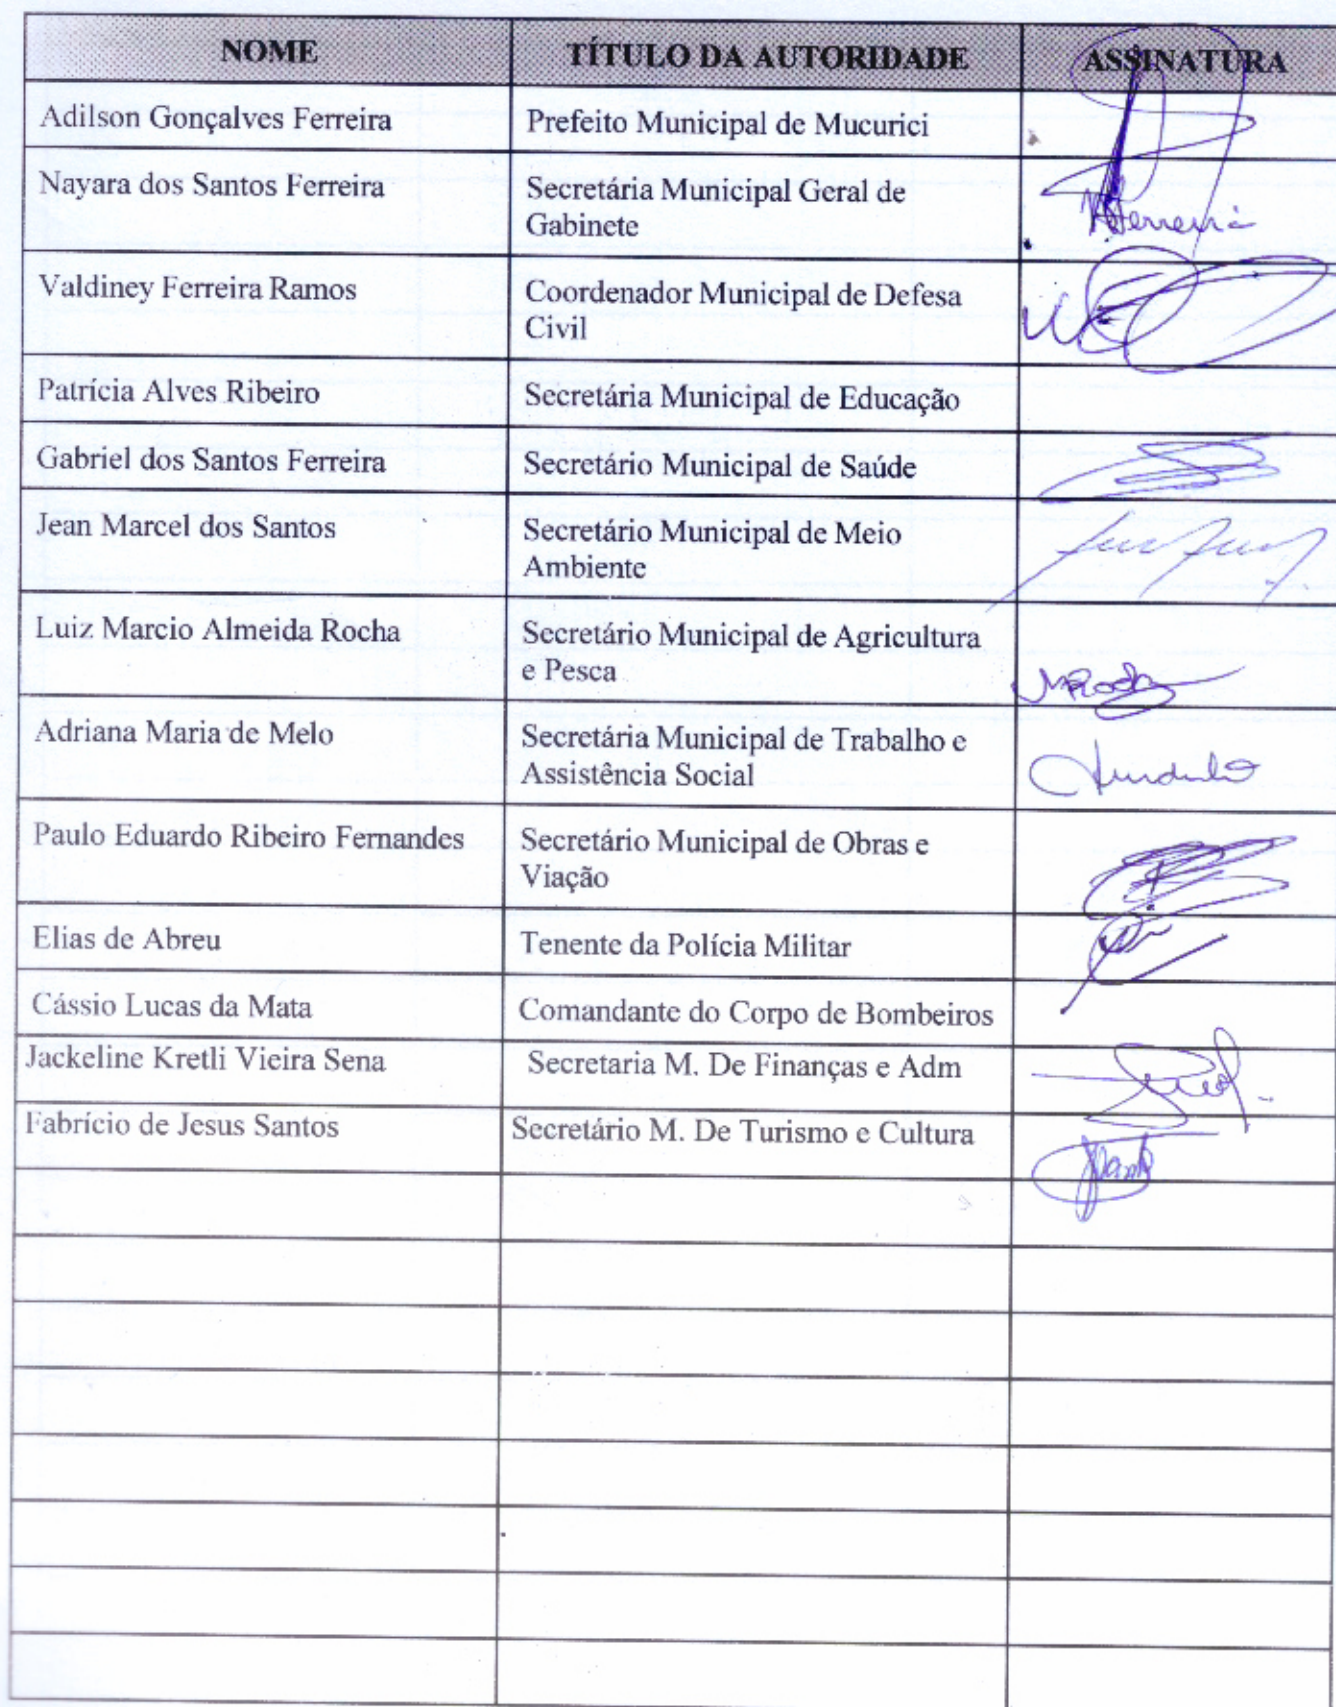 NOME TÍTULO DA AUTORIDADE ASSINATURA
Adilson Gonçalves Ferreira Prefeito Municipal de Mucurici
Nayara dos Santos Ferreira Secretária Municipal Geral de
Gabinete
NSFerreira
Valdiney Ferreira Ramos Coordenador Municipal de Defesa
Civil
Patrícia Alves Ribeiro Secretária Municipal de Educação
Gabriel dos Santos Ferreira Secretário Municipal de Saúde
Jean Marcel dos Santos Secretário Municipal de Meio
Ambiente
Luiz Marcio Almeida Rocha Secretário Municipal de Agricultura
e Pesca
Adriana Maria de Melo Secretária Municipal de Trabalho e
Assistência Social
Paulo Eduardo Ribeiro Fernandes Secretário Municipal de Obras e
Viação
Elias de Abreu Tenente da Polícia Militar
Cássio Lucas da Mata Comandante do Corpo de Bombeiros
Jackeline Kretli Vieira Sena Secretaria M. De Finanças e Adm
Fabrício de Jesus Santos Secretário M. De Turismo e Cultura